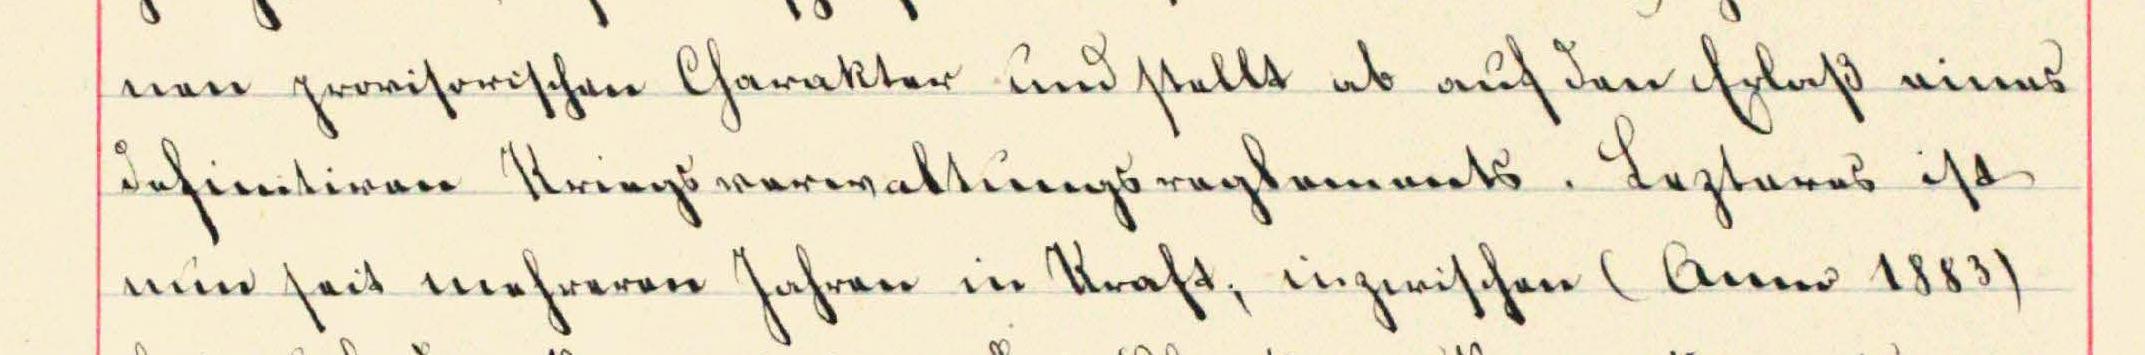 nen provisorischen Charakter und stellt ab auf den Erlaß eines
definitiven Kriegsverwaltungsreglements. Lezteres ist
nun seit mehreren Jahren in Kraft; inzwischen (Anno 1883)